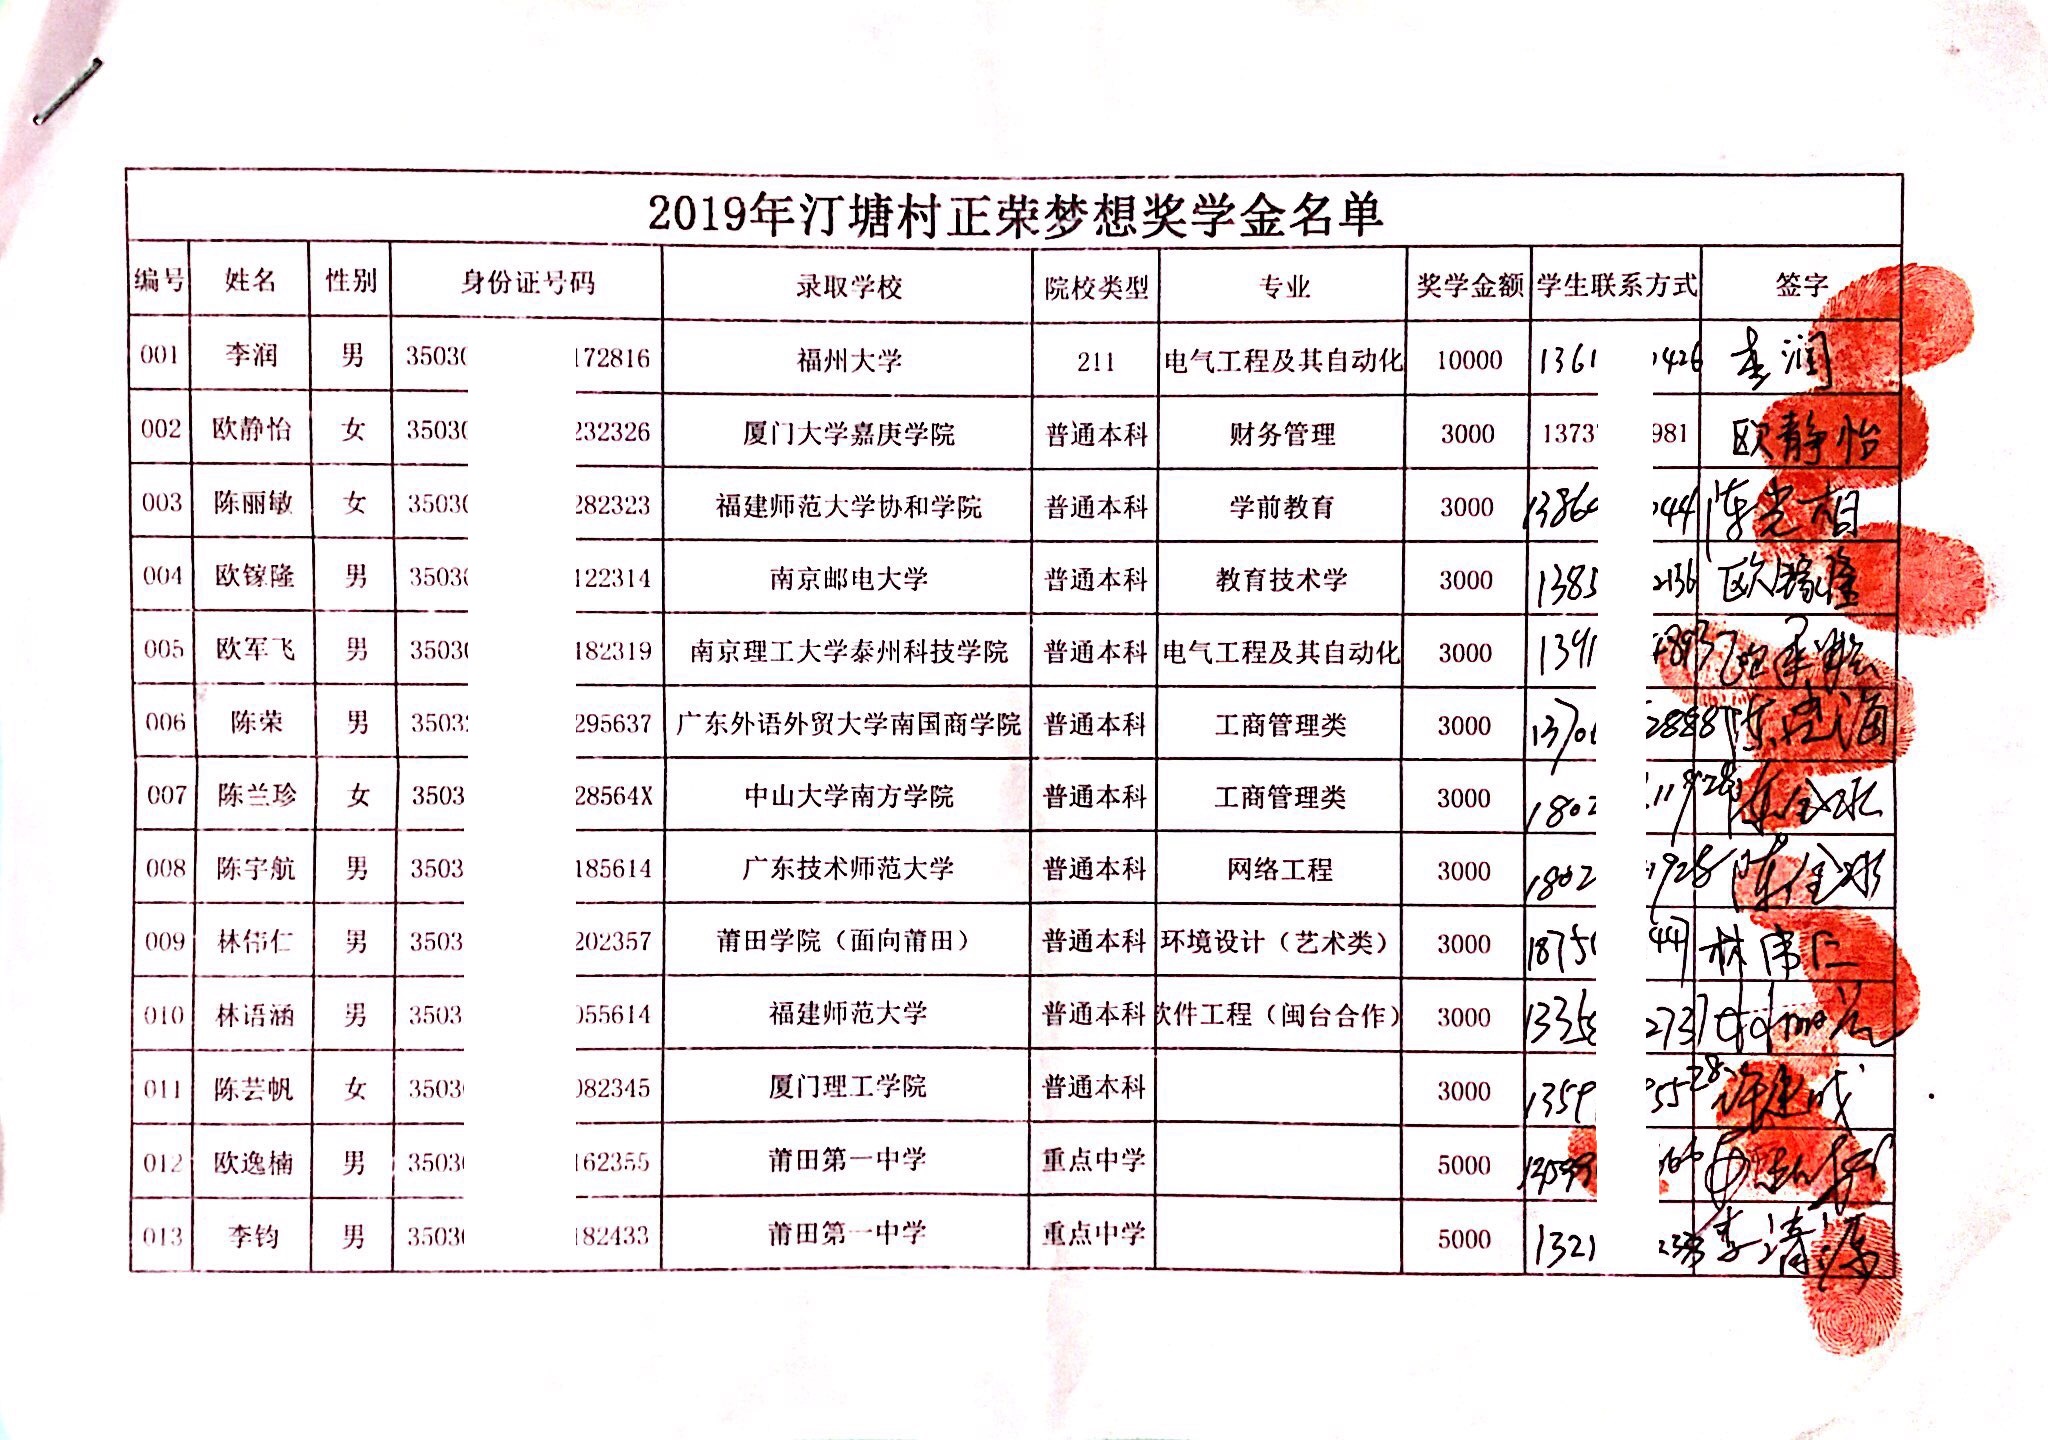 2019年汀塘村正荣梦想奖学金名单
编号 姓名 性别 身份证号码 录取学校 院校类型 专业 奖学金额 学生联系方式 签字
001 李润 男 3503 172816 福州大学 211 电气工程及其自动化 10000 1361 1426 李润
002 欧静怡 女 3503 232326 厦门大学嘉庚学院 普通本科 财务管理 3000 1373 981 欧静怡
003 陈丽敏 女 3503 282323 福建师范大学协和学院 普通本科 学前教育 3000 1386 44
004 欧镓隆 男 3503 122314 南京邮电大学 普通本科 教育技术学 3000 1385 2136 欧镓隆
005 欧军飞 男 3503 182319 南京理工大学泰州科技学院 普通本科 电气工程及其自动化 3000 1391 893
006 陈荣 男 3503 295637 广东外语外贸大学南国商学院 普通本科 工商管理类 3000 1370 2888
007 陈兰珍 女 3503 28564X 中山大学南方学院 普通本科 工商管理类 3000 1802
008 陈宇航 男 3503 185614 广东技术师范大学 普通本科 网络工程 3000 1802 928
009 林伟仁 男 3503 202357 莆田学院（面向莆田） 普通本科 环境设计（艺术类） 3000 1875 447 林伟仁
010 林语涵 男 3503 055614 福建师范大学 普通本科 软件工程（闽台合作） 3000 1335 273
011 陈芸帆 女 3503 082345 厦门理工学院 普通本科 3000 1359
012 欧逸楠 男 3503 162355 莆田第一中学 重点中学 5000
013 李钧 男 3503 182433 莆田第一中学 重点中学 5000 1321 李清